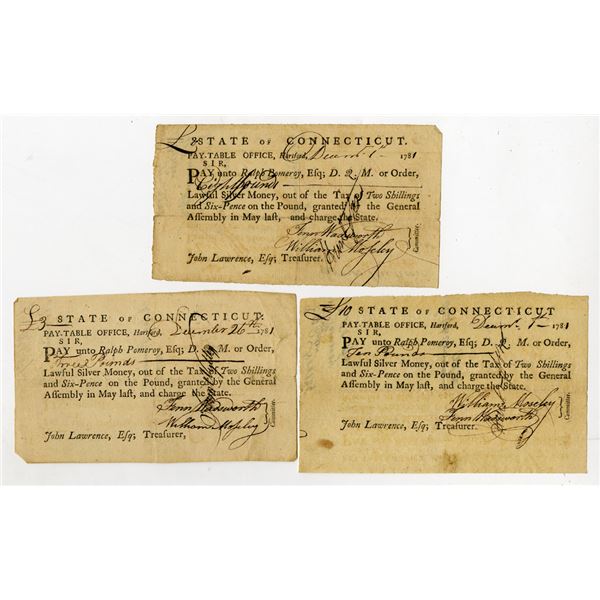 £8 STATE OF CONNECTICUT.
PAY-TABLE OFFICE, Hartford, Decemr. 1 1781
SIR,
PAY unto Ralph Pomeroy, Esq; D. Q. M. or Order,
Eight Pounds
Lawful Silver Money, out of the Tax of Two Shillings
and Six-Pence on the Pound, granted by the General
Assembly in May last, and charge the State.
Fenn Wadsworth
William Moseley
Committee.
John Lawrence, Esq; Treasurer.
£3 STATE OF CONNECTICUT.
PAY-TABLE OFFICE, Hartford, December 26th 1781
SIR,
PAY unto Ralph Pomeroy, Esq; D. Q. M. or Order,
Three Pounds
Lawful Silver Money, out of the Tax of Two Shillings
and Six-Pence on the Pound, granted by the General
Assembly in May last, and charge the State.
Fenn Wadsworth
William Moseley
Committee.
John Lawrence, Esq; Treasurer,
£10 STATE OF CONNECTICUT.
PAY-TABLE OFFICE, Hartford, Decemr. 1 1781
SIR,
PAY unto Ralph Pomeroy, Esq; D. Q. M. or Order,
Ten Pounds
Lawful Silver Money, out of the Tax of Two Shillings
and Six-Pence on the Pound, granted by the General
Assembly in May last, and charge the State.
William Moseley
Fenn Wadsworth
Committee.
John Lawrence, Esq; Treasurer.